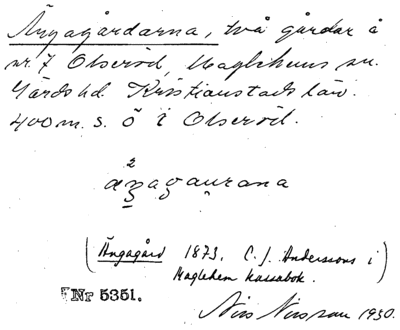 Ängagårdarna, två gårdar å
nr 7 Olseröd, Maglehems sn.
Gärds hd. Kristianstads län.
400 m. s. ö i Olseröd.
2
aŋagau̯rana
(Ängagård 1873, C. J. Anderssons i
Maglehem kassabok.)
Nr 5351.
Nils Nilsson 1930.